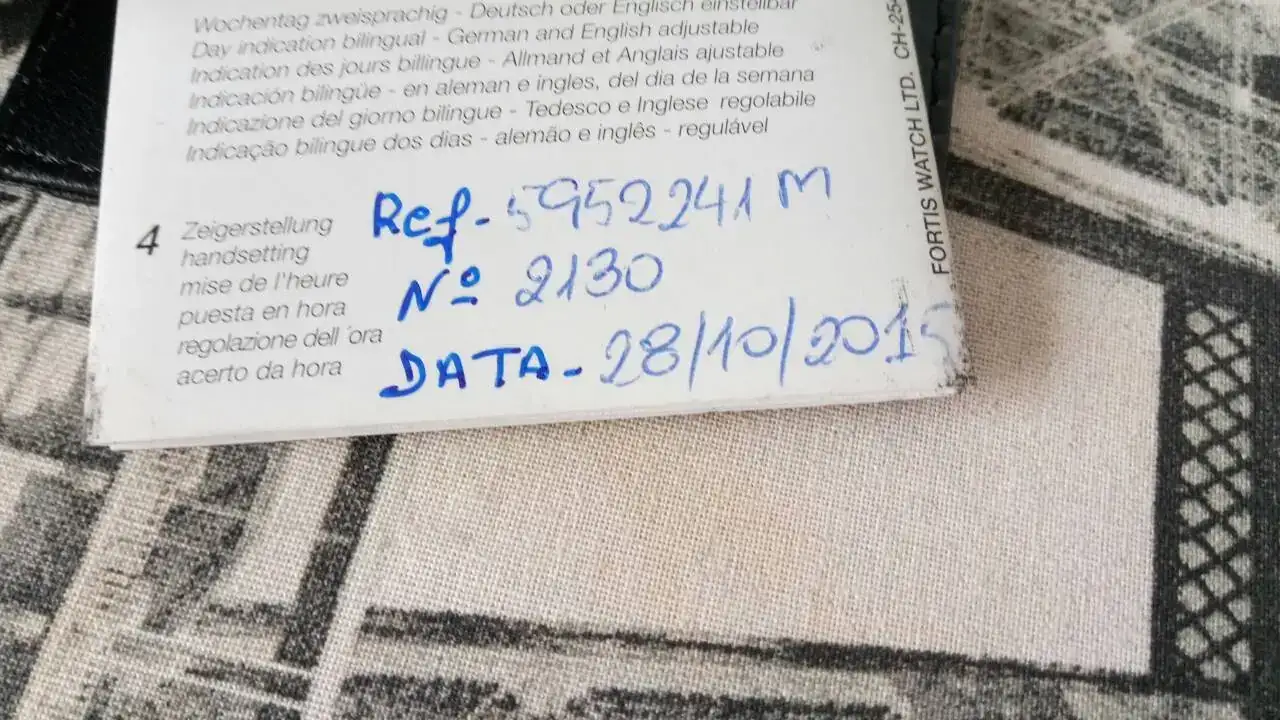 Wochentag zweisprachig - Deutsch oder Englisch einstellbar
Day indication bilingual - German and English adjustable
Indication des jours billingue - Allmand et Anglais ajustable
Indicación bilingüe - en aleman e ingles, del dia de la semana
Indicazione del giorno bilingue - Tedesco e Inglese regolabile
Indicação bilingue dos dias - alemão e inglês - regulável
4 Zeigerstellung
handsetting
mise de l'heure
puesta en hora
regolazione dell´ora
acerto da hora
Ref- 5952241 M
Nº 2130
DATA- 28/10/2015
FORTIS WATCH LTD. CH-254